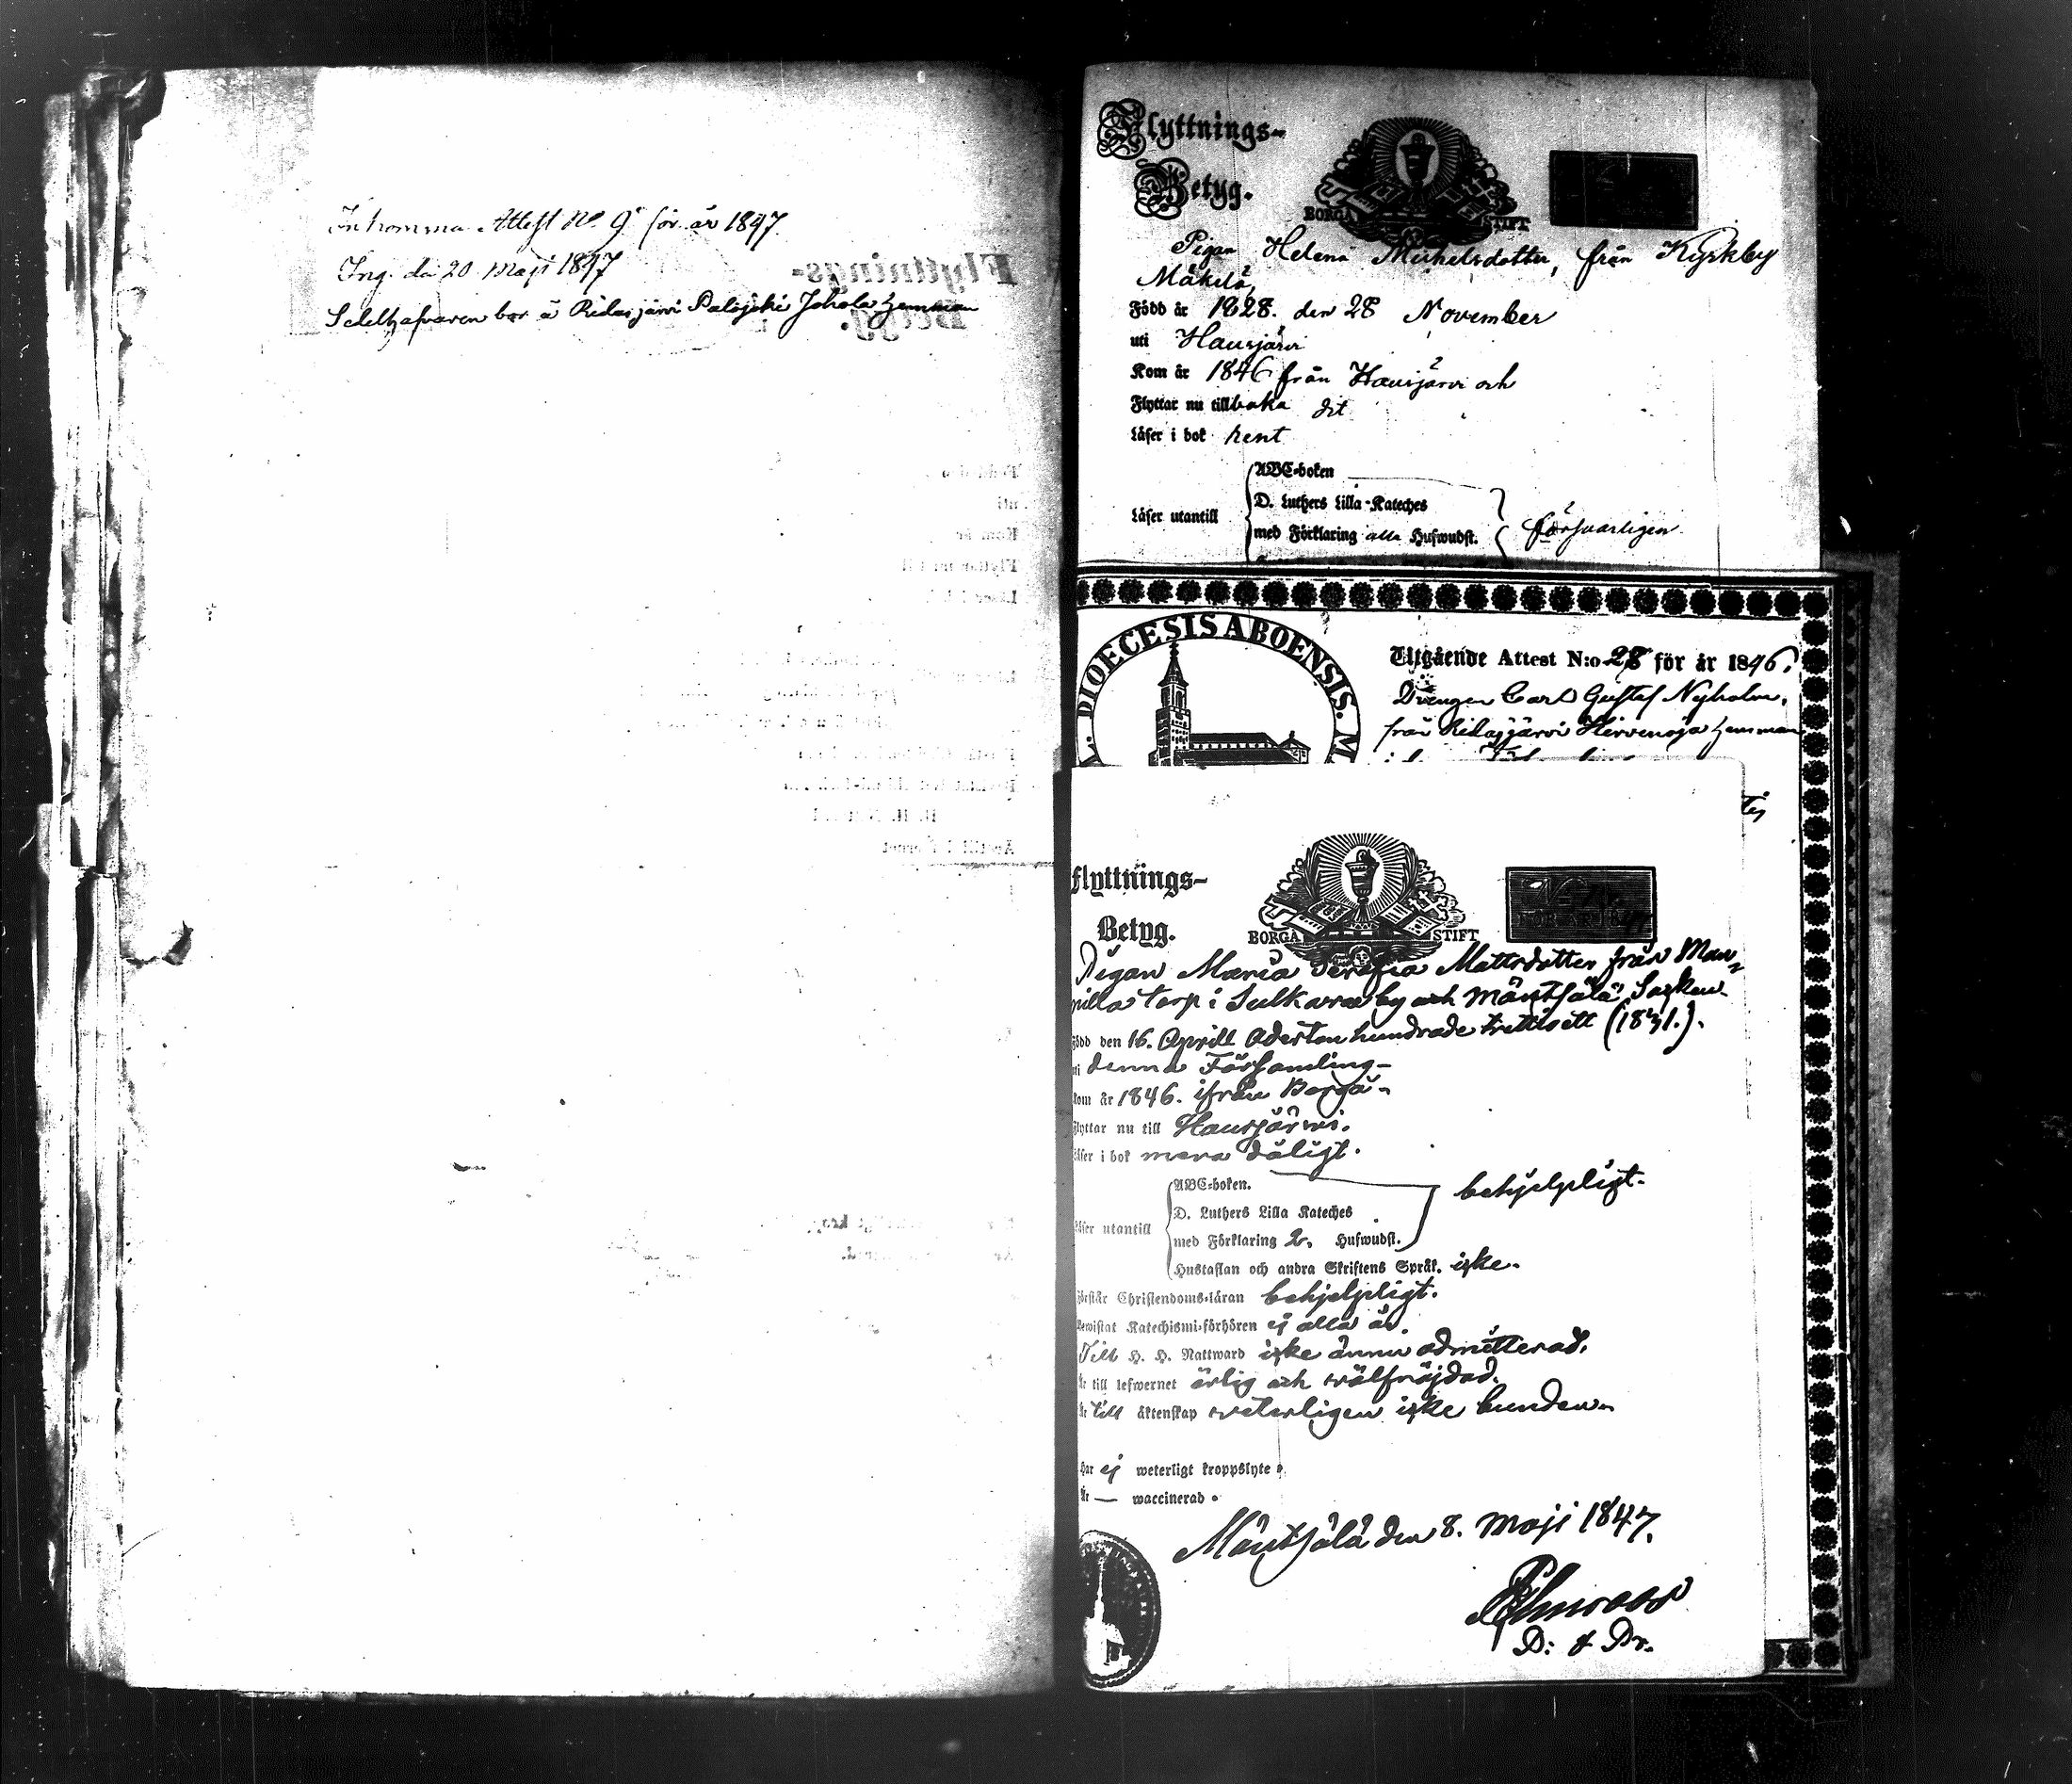 Inkomma Attest No 9 för år 1847
Ing. den 20 Maji 1847
Sedelhafvaren bor å Ridasjärvi Palojoki Johola hemman
Flyttnings-
Betyg.
BORGÅ STIFT
Pigan Helena Michelsdotter, från Kyrkby
Mäkelä,
Född år 1828. den 28 November
uti Hausjärvi
Kom år 1846 från Hausjärvi och
Flyttar nu tillbaka dit
Läser i bok rent
Läser utantill
ABC-boken
D. Luthers Lilla-Kateches
med Förklaring alla Hufwudst.
försvarligen
DIOECESIS ABOENSIS. M
Utgående Attest N:o 28 för år 1846.
Drengen Carl Gustaf Nyholm,
från Ridasjärvi Hirvenoja hemman
Flyttnings-
Betyg.
BORGÅ STIFT
Pigan Maria Serafia Mattsdotter från Man-
nilla torp i Sulkava by och Mäntsälä Socken
Född den 16. Aprill Adertonhundrade trettioett (1831.).
uti denna Församling
Kom år 1846. ifrån Borgå
Flyttar nu till Hausjärvi.
Läser i bok mera dåligt.
Läser utantill
ABC-boken.
D. Luthers Lilla Kateches
med Förklaring 2. Hufwudst.
behjelpligt.
Hustaflan och andra Skriftens Språk. icke.
Förstår Christendoms-läran behjelpligt.
Bewistat Katechismi-förhören ej alla år.
Till H. H. Nattward icke ännu admitterad.
Är till lefwernet ärlig och wälfräjdad.
Är till äktenskap veterligen icke bunden.
Har ej weterligt kroppslyte.
Är — waccinerad.
Mäntsälä den 8. Maji 1847.